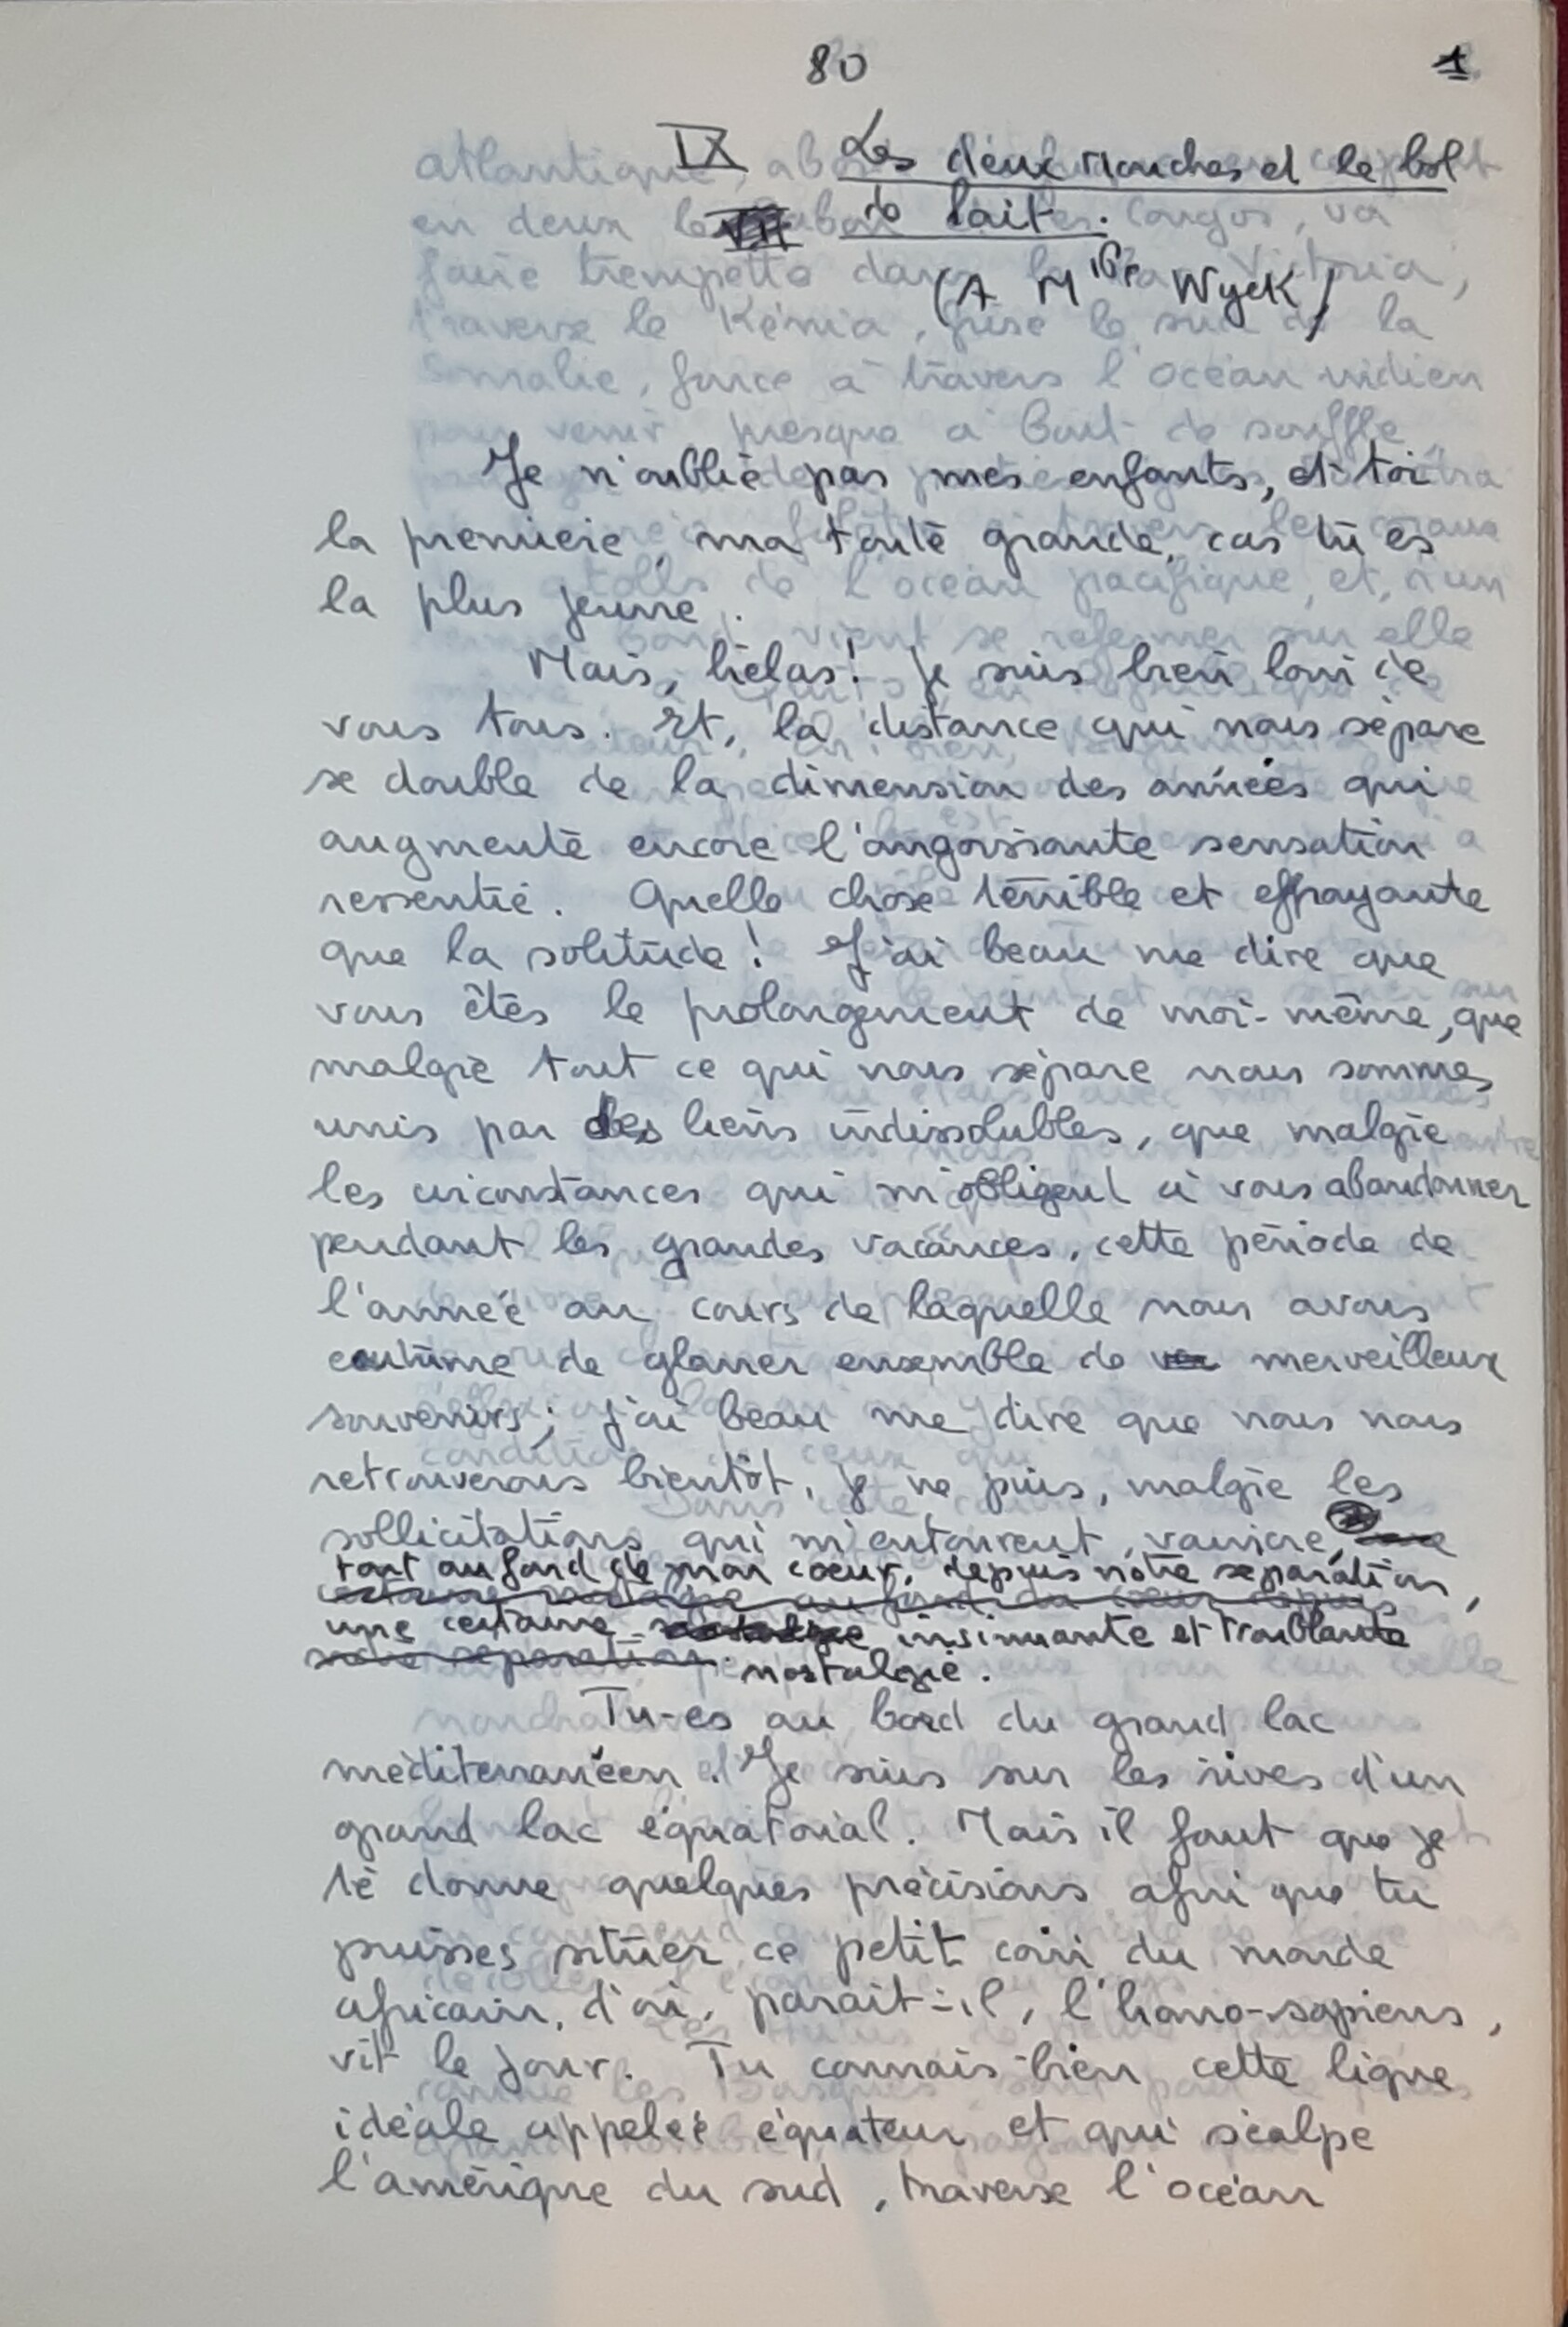 80 1
IX Les deux Mouches et le bol
VII de lait.
(A Mlle Wyck)
Je n'oublie pas mes enfants, et toi
la première, ma toute grande, car tu es
la plus jeune.
Mais, hélas! je suis bien loin de
vous tous. Et, la distance qui nous sépare
se double de la dimension des années qui
augmente encore l'angoissante sensation
ressentie. Quelle chose terrible et effrayante
que la solitude! J'ai beau me dire que
vous êtes le prolongement de moi-même, que
malgré tout ce qui nous sépare nous sommes
unis par des liens indissolubles, que malgré
les circonstances qui m'obligent à vous abandonner
pendant les grandes vacances, cette période de
l'année au cours de laquelle nous avons
coutume de glaner ensemble de merveilleux
souvenirs; j'ai beau me dire que nous nous
retrouverons bientôt, je ne puis, malgré les
sollicitations qui m'entourent, vaincre,
tout au fond de mon coeur, depuis notre séparation,
une certaine insinuante et troublante
nostalgie.
Tu-es au bord du grand lac
méditerranéen. Je suis sur les rives d'un
grand lac équatorial. Mais il faut que je
te donne quelques précisions afin que tu
puisses situer ce petit coin du monde
africain, d'où, parait-il, l'homo-sapiens,
vit le jour. Tu connais bien cette ligne
idéale appelée équateur et qui scalpe
l'amérique du sud, traverse l'océan